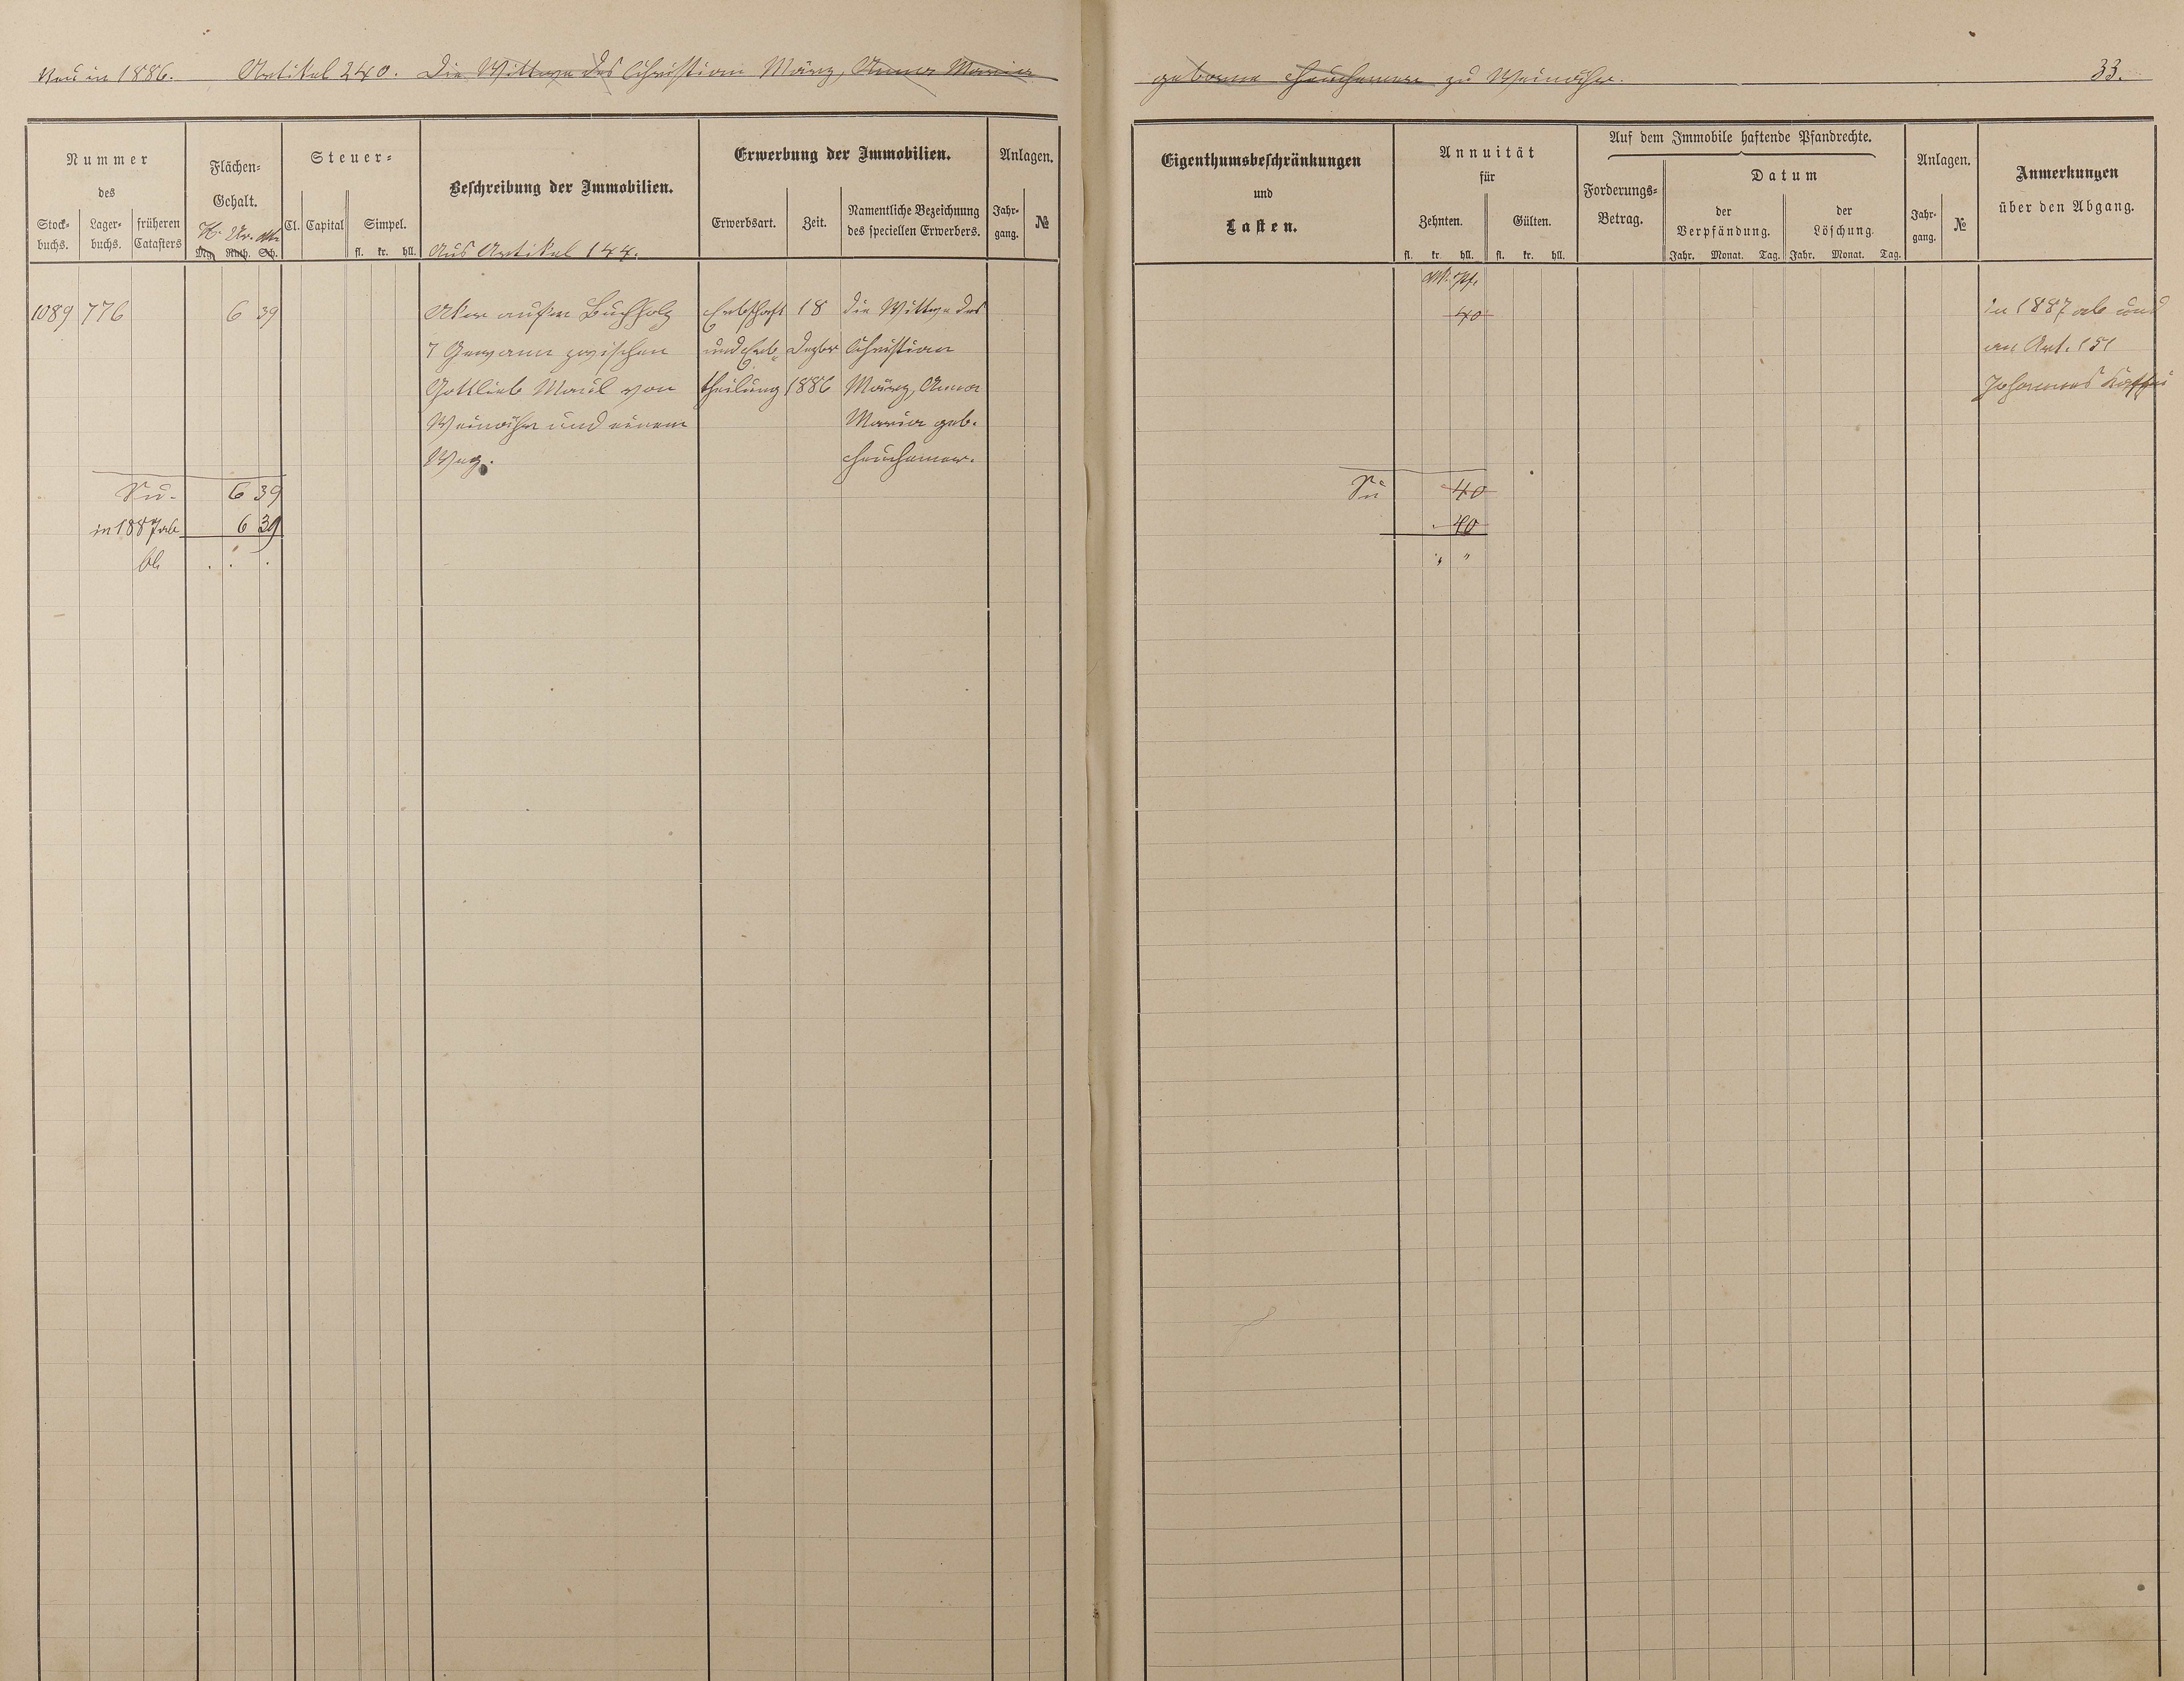 Neu in 1886. Artikel 240. Die Wittwe des Christian März, Anna Maria
geborene Heuchemer zu Weinähr. 33.
Nummer
des
Stock-
buchs.
Lager-
buchs.
früheren
Catasters
Flächen-
Gehalt.
H. Ar. Mtr.
Mg. Ruth. Sch.
Steuer-
Cl. Capital Simpel.
fl. kr. hll.
Beschreibung der Immobilien.
Aus Artikel 144.
Erwerbung der Immobilien.
Erwerbsart. Zeit.
Namentliche Bezeichnung
des speciellen Erwerbers.
Anlagen.
Jahr-
gang.
№
Eigenthumsbeschränkungen
und
Lasten.
Annuität
für
Zehnten. Gülten.
fl. kr. hll. fl. kr. hll.
Auf dem Immobile haftende Pfandrechte.
Forderungs-
Betrag.
Datum
der
Verpfändung.
der
Löschung.
Jahr. Monat. Tag. Jahr. Monat. Tag.
Anlagen.
Jahr-
gang.
№
Anmerkungen
über den Abgang.
M. Pf.
1089 776 6 39 Aker Buchholz Erbschaft 18 die Wittwe des 40 in 1887 ab und
7 Gewann zwischen und Erb- Dezbr Christian an Art. 151
Gottlieb Maul von theilung 1886 März, Anna Johannes
Weinähr und einem Maria geb.
Weg. Heuchemer.
Su. 6 39 Su 40
in 1887 ab 6 39 40
bl . . . " "